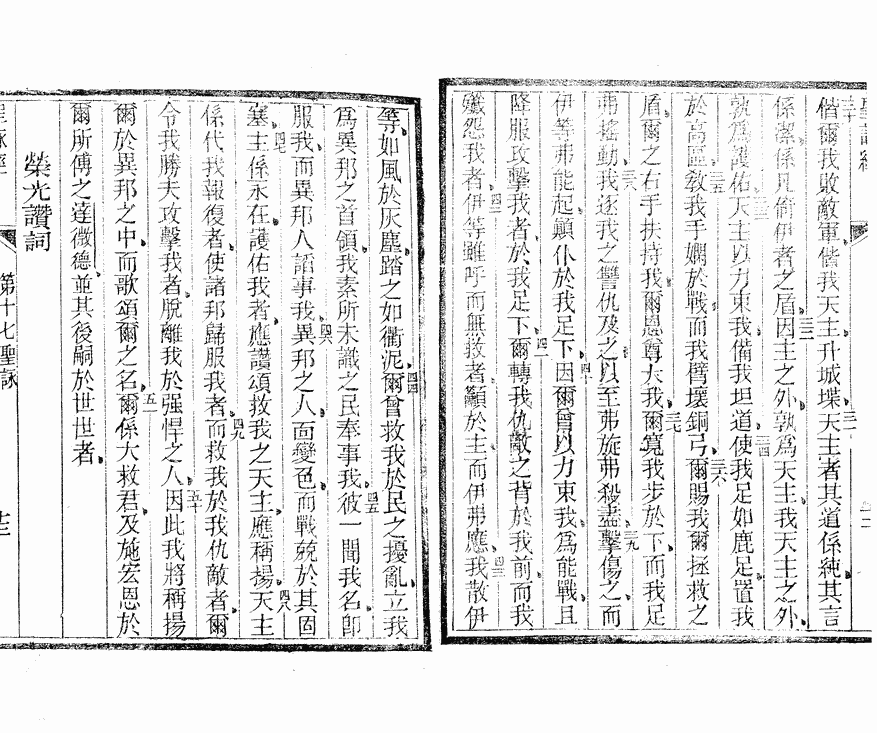 聖詠經
三十
偕爾我敗敵軍偕我天主升城堞三一天主者其道係純其言
係潔係凡倚伊者之盾三二因主之外孰為天主我天主之外
孰為護佑三三天主以力束我備我坦道三四使我足如鹿足置我
於高區三五敎我手嫺於戰而我臂壞銅弓三六爾賜我爾拯救之
盾爾之右手扶持我爾恩尊大我三七爾寬我步於下而我足
弗搖動三八我逐我之讐仇及之以至弗旋弗殺盡三九擊傷之而
伊等弗能起顛仆於我足下四十因爾曾以力束我為能戰且
降服攻擊我者於我足下四一爾轉我仇敵之背於我前而我
殲怨我者四二伊等雖呼而無救者籲於主而伊弗應四三我散伊
等如風於灰塵踏之如衢泥四四爾曾救我於民之擾亂立我
為異邦之首領我素所未識之民奉事我四五彼一聞我名即
服我而異邦人謟事我四六異邦之人面變色而戰兢於其固
寨四七主係永在護佑我者應讚頌救我之天主應稱揚四八天主
係代我報復者使諸邦歸服我者四九而救我於我仇敵者爾
令我勝夫攻擊我者脫離我於强悍之人五十因此我將稱揚
爾於異邦之中而歌頌爾之名五一爾係大救君及施宏恩於
爾所傅之達微德並其後嗣於世世者
榮光讚詞
聖詠經
第十七聖詠